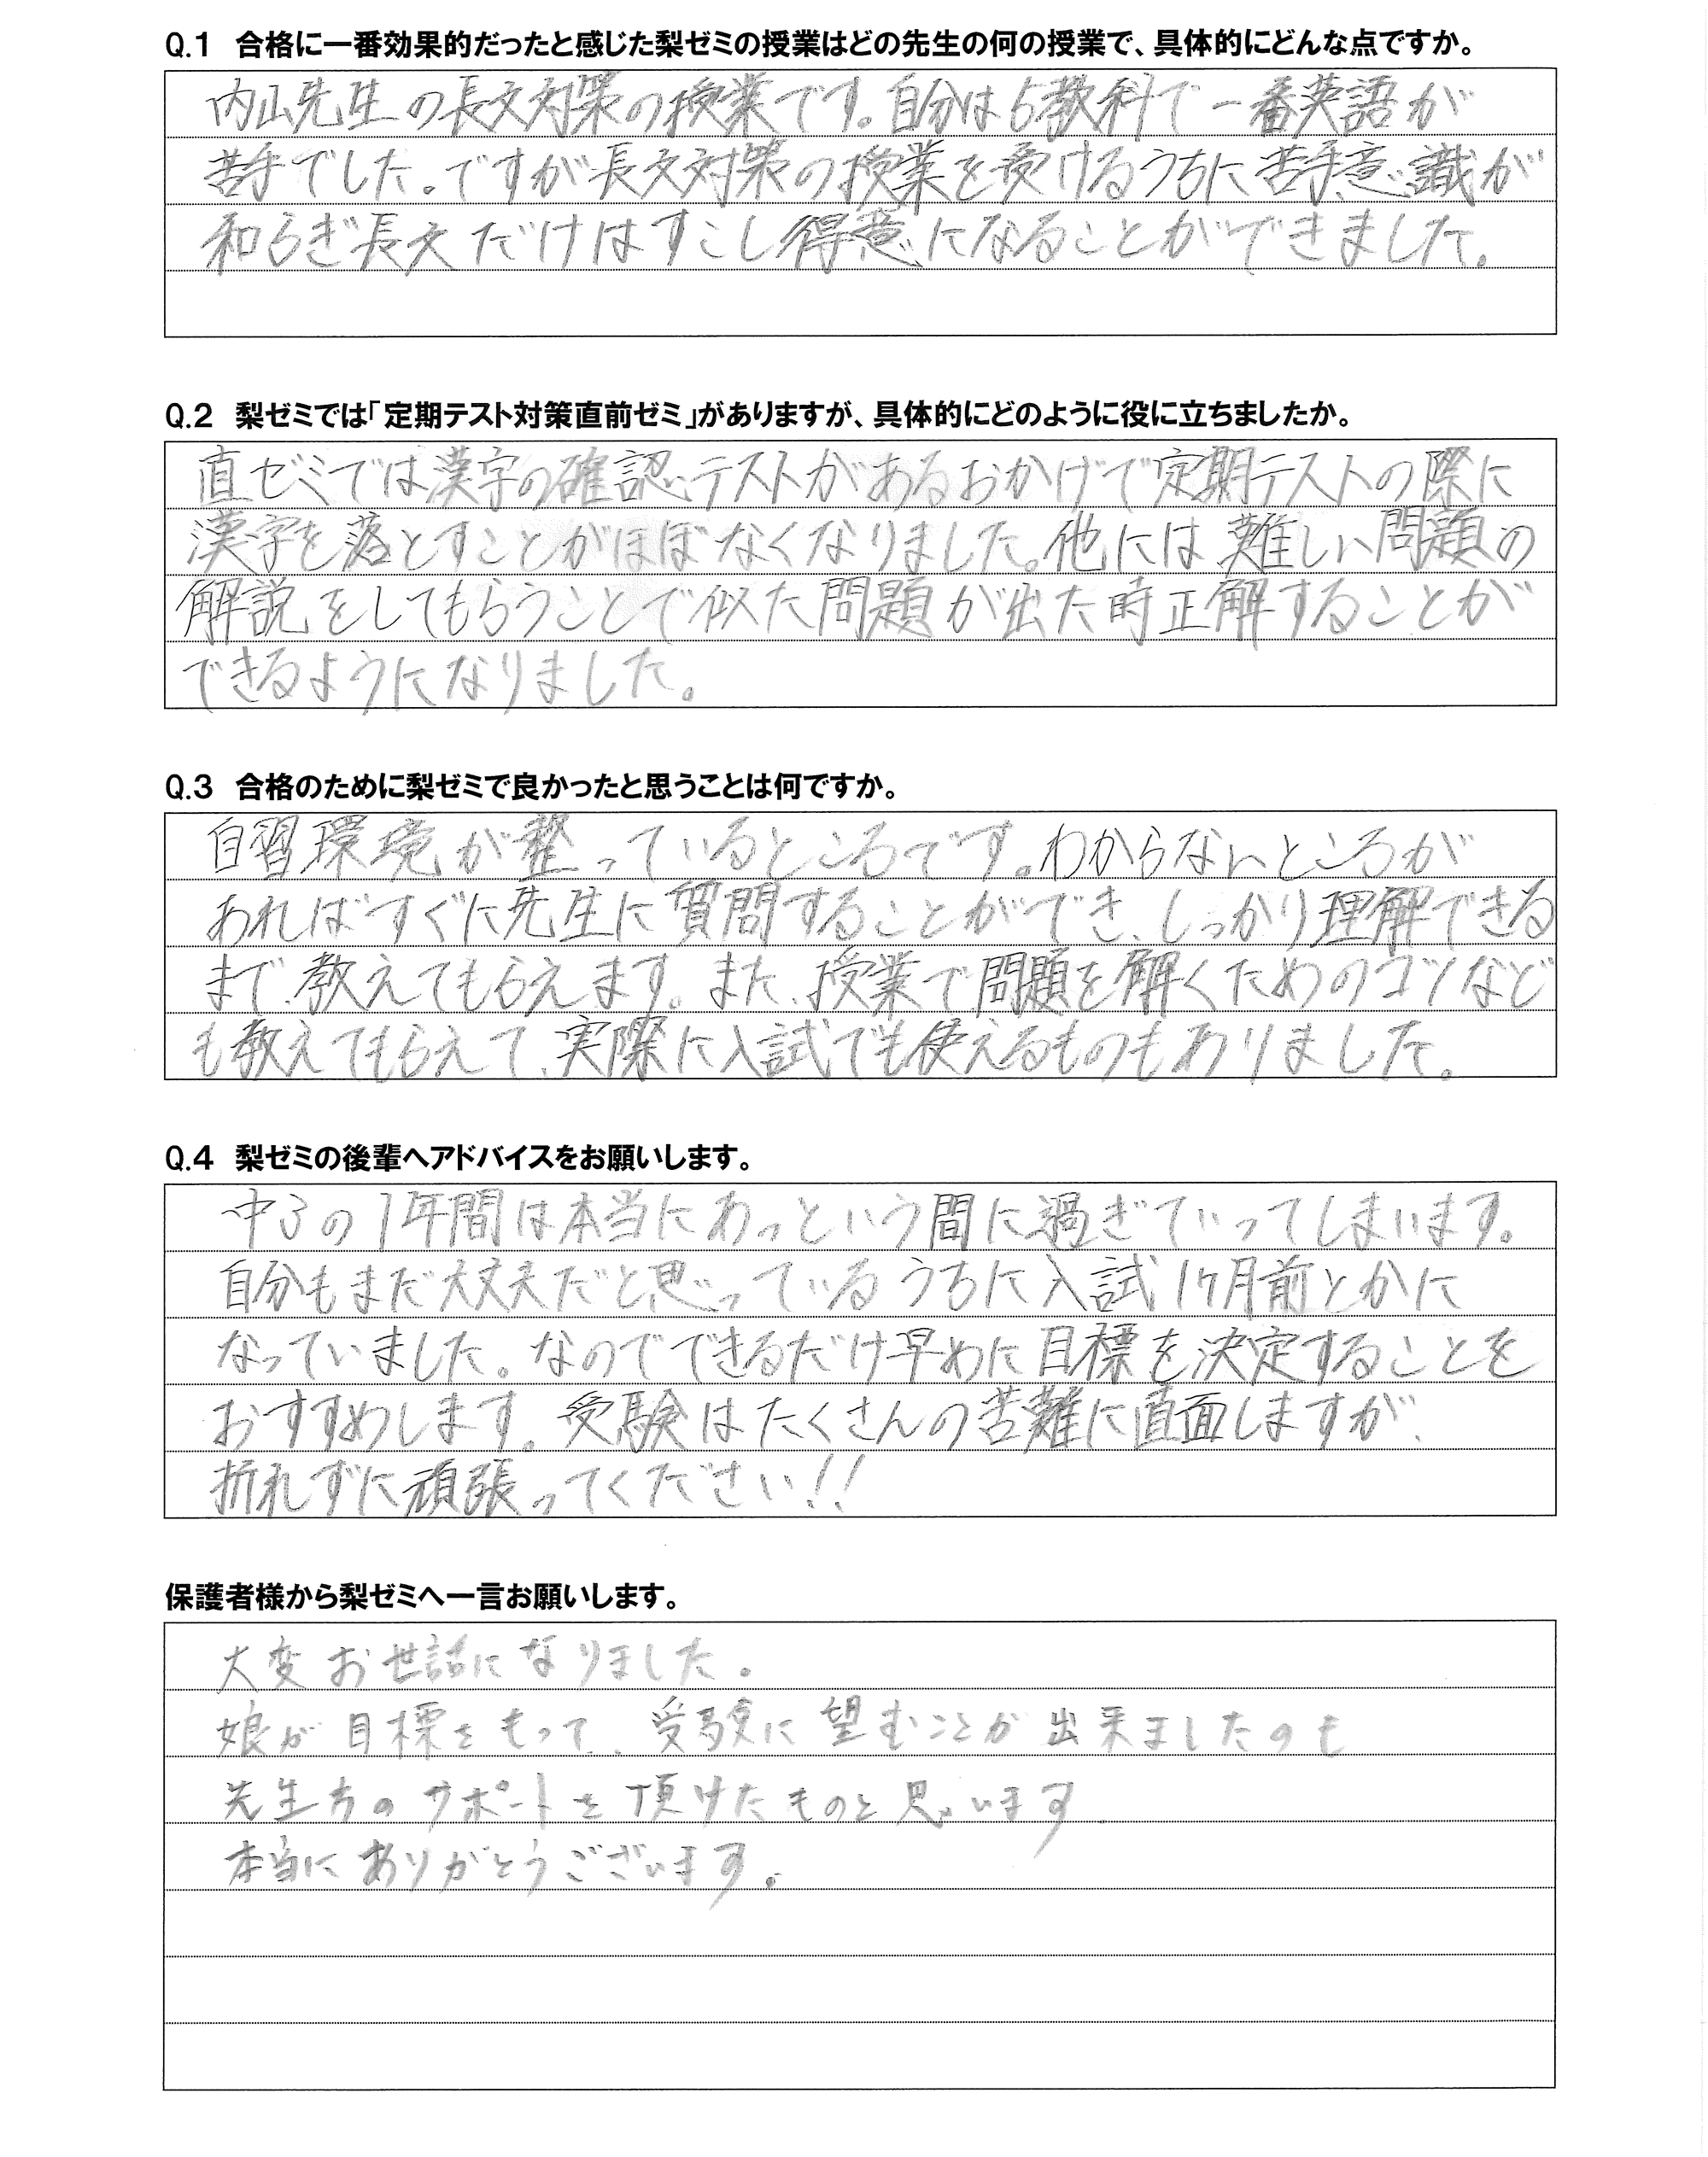 Q.1 合格に一番効果的だったと感じた梨ゼミの授業はどの先生の何の授業で、具体的にどんな点ですか。
内山先生の長文対策の授業です。自分は5教科で一番英語が
苦手でした。ですが長文対策の授業を受けるうちに苦手意識が
和らぎ長文だけはすこし得意になることができました。
Q.2 梨ゼミでは「定期テスト対策直前ゼミ」がありますが、具体的にどのように役に立ちましたか。
直ゼミでは漢字の確認テストがあるおかげで定期テストの際に
漢字を落とすことがほぼなくなりました。他には難しい問題の
解説をしてもらうことで似た問題が出た時正解することが
できるようになりました。
Q.3 合格のために梨ゼミで良かったと思うことは何ですか。
自習環境が整っているところです。わからないところが
あればすぐに先生に質問することができ、しっかり理解できる
まで教えてもらえます。また、授業で問題を解くためのコツなど
も教えてもらえて、実際に入試でも使えるものもありました。
Q.4 梨ゼミの後輩へアドバイスをお願いします。
中3の1年間は本当にあっという間に過ぎていってしまいます。
自分もまだ大丈夫だと思っているうちに入試1ヶ月前とかに
なっていました。なのでできるだけ早めに目標を決定することを
おすすめします。受験はたくさんの苦難に直面しますが、
折れずに頑張ってください!!
保護者様から梨ゼミへ一言お願いします。
大変お世話になりました。
娘が目標をもって、受験に望むことが出来ましたのも
先生方のサポートを頂けたものと思います
本当にありがとうございます。